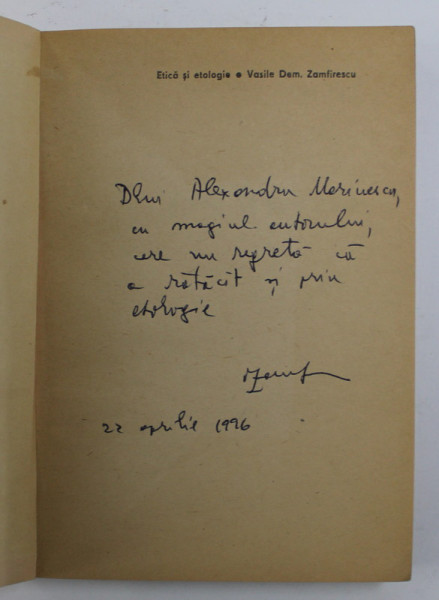 Etică și etologie • Vasile Dem. Zamfirescu
Dlui Alexandru Marinescu,
cu omagiul autorului,
care nu regretă că
a rătăcit și prin
etologie
22 aprilie 1996